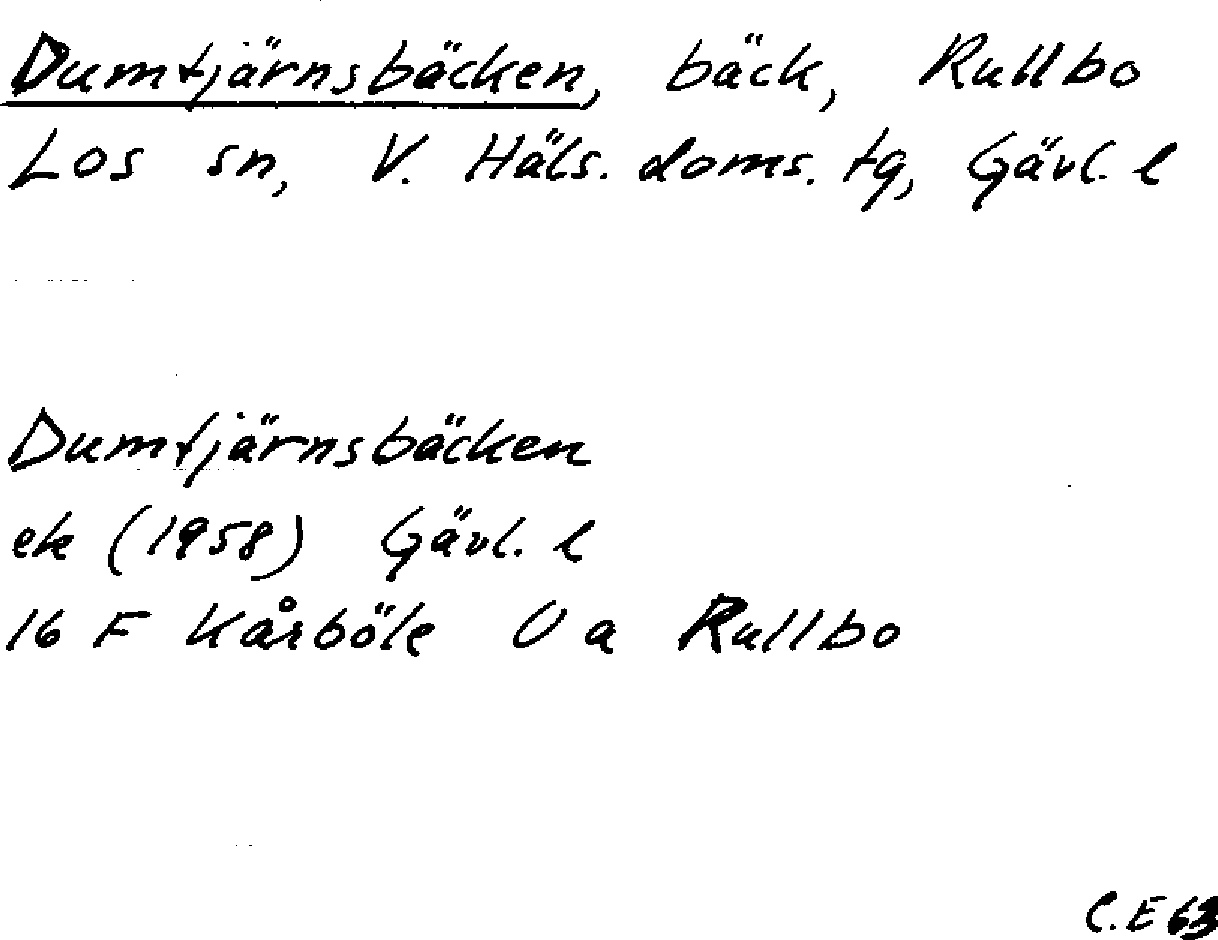 Dumtjärnsbäcken, bäck, Rullbo
Los sn, V. Häls. doms. tg, Gävl. l
Dumtjärnsbäcken
ek (1958) Gävl. l
16 F Kårböle O a Rullbo
C.E 63